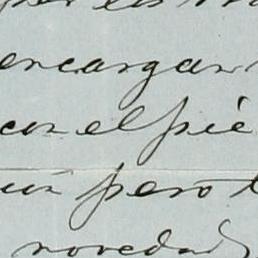 encargar
con el pié
un pero
novedad